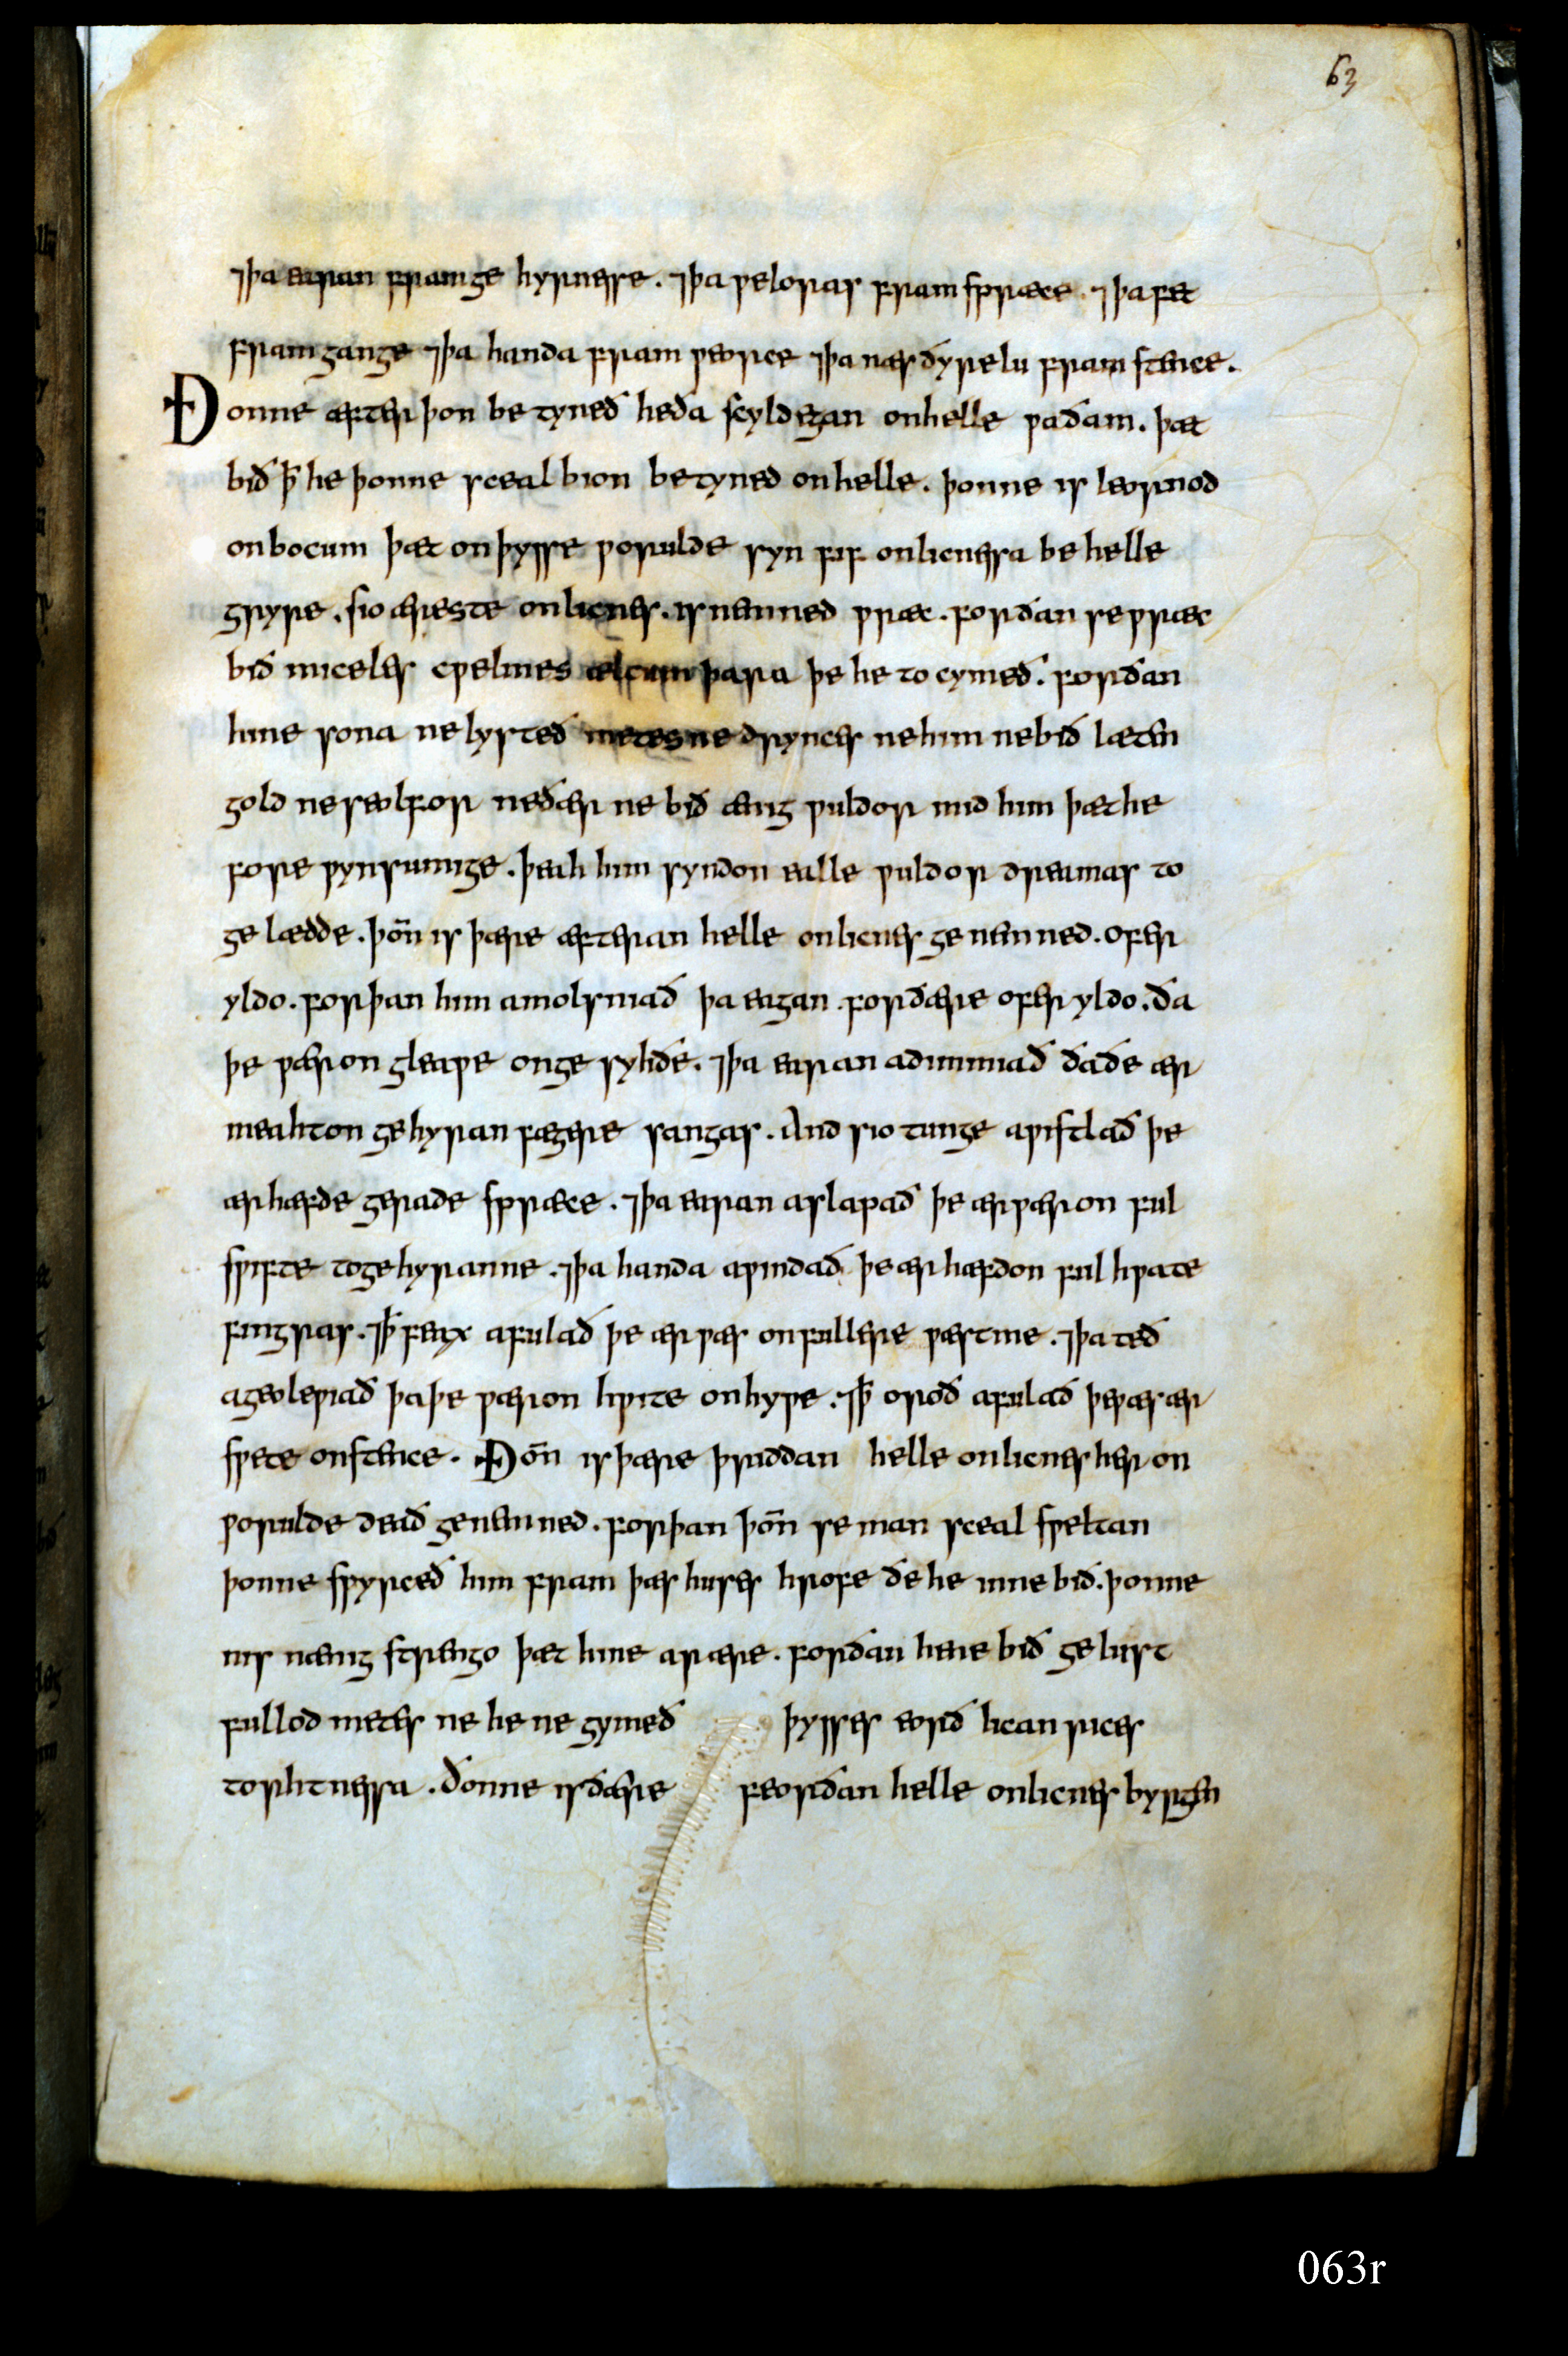 63
⁊þa earan fram ge hyrnesse. ⁊þa ƿeloras fram spræce. ⁊þa fet
fram gange ⁊þa handa fram ƿeorce ⁊þa næsðyrelu fram stence.
Ðonne æfter þon be tyneð heða scyldegan onhelle ƿaðam. þæt
bið þ̄ he þonne sceal bion betyned onhelle. þonne is leornod
onbocum þæt onþysse ƿorulde syn fif onlicnessa be helle
gryre. sio æreste onlicnes. is nemned ƿræc. forðan se ƿræc
bið miceles cƿelmes ælcum þara þe he to cymeð. forðan
hine sona ne lysteð metes ne drynces ne him ne bið læten
gold ne seolfor ne ðær ne bið ænig ƿuldor mid him þæt he
fore ƿynsumige. þeah him syndon ealle ƿuldor dreamas to
ge lædde. þoñ is þære æfteran helle onlicnes ge nemned. ofer
yldo. forþan him amolsniað þa eagan. forðære ofer yldo. ða
þe ƿæron gleaƿe onge syhðe. ⁊þa earan adimmiað ðaðe ær
meahton gehyran fægere sangas. And sio tunge aƿistlað þe
ær hæfde gerade spræce. ⁊þa earan aslapað þe ær ƿæron ful
sƿifte togehyranne. ⁊þa handa aƿindað þe ær hæfdon ful hƿate
fingras. ⁊þ̄ feax afulað þe ær ƿæs onfullere ƿæstme. ⁊þa teð
ageoleƿiað þaþe ƿæron hƿite onhyƿe. ⁊þ̄ oroð afulað þe ƿæs ær
sƿete onstence. Ðoñ is þære þriddan helle onlicnes her on
ƿorulde deað genemned. forþan þoñ se man sceal sƿeltan
þonne sƿyrceð him fram þæs huses hrofe ðe he inne bið. þonne
nis nænig strengo þæt hine arære. forðan he ne bið ge lust
fullod metes ne he ne gymeð þysses eorð lican rices
torhtnessa. ðonne is ðære feorðan helle onlicnes byrgen
063r